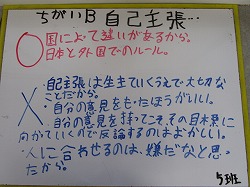 ちがいB 自己主張…
○国によって違いがあるから。
日本と外国でのルール。
×・自己主張は生きていくうえで大切な
ことだから。
・自分の意見をもったほうがいい。
・自分の意見を持ってこそ、その日本界に
向かていくので反論するのはおかしい。
・人に合わせるのは、嫌だなと思っ
たから。
5班